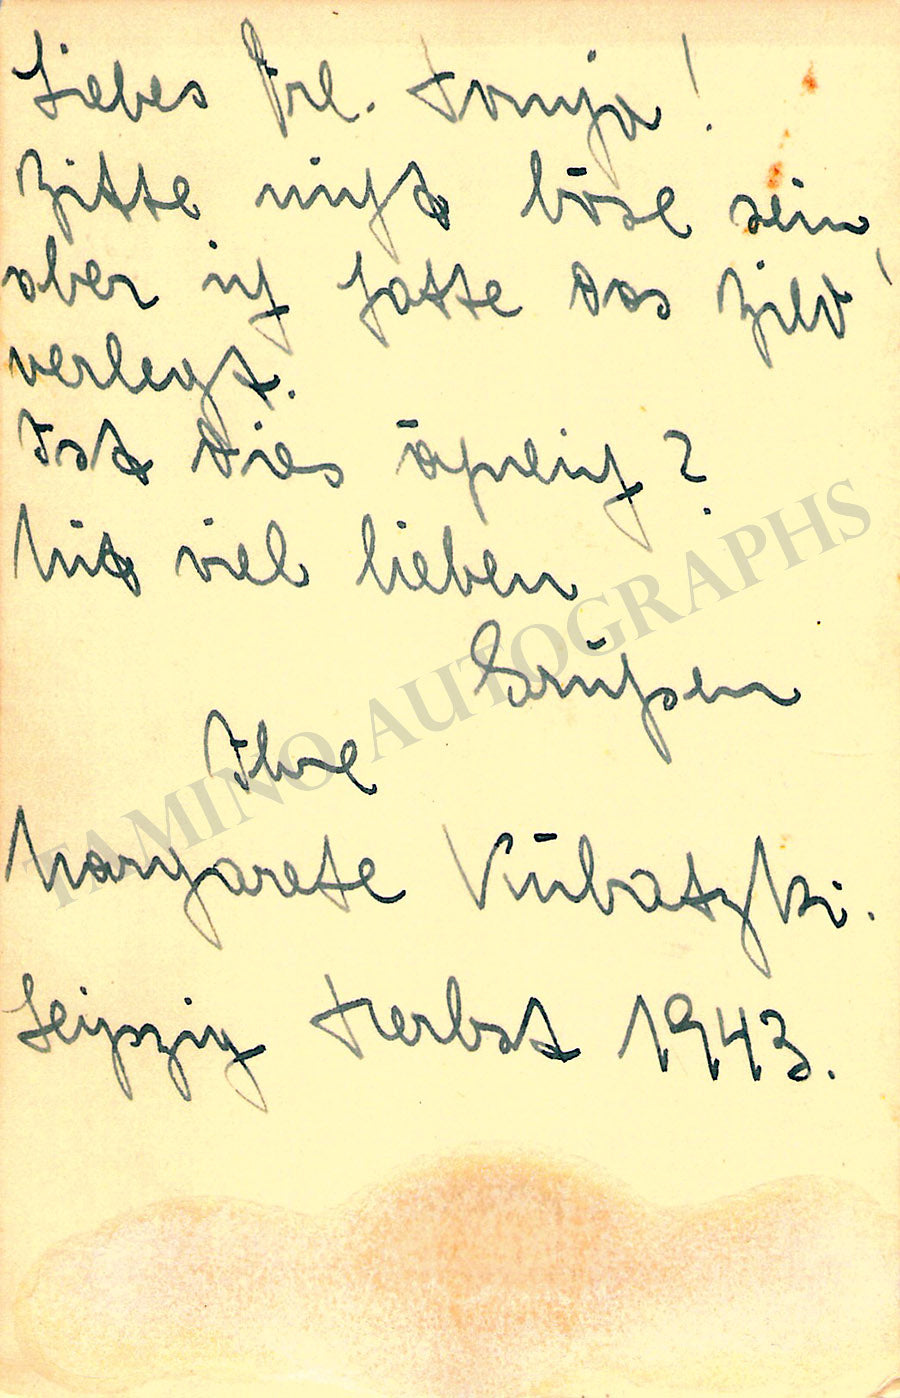 Liebes Frl. Tonja!
Bitte nicht böse sein
aber ich hatte das Bild
verlegt.
Ist dies ähnlich?
Mit viel lieben
Grüßen
Ihre
Margarete Kubatzki.
Leipzig Herbst 1943.
TAMINO AUTOGRAPHS